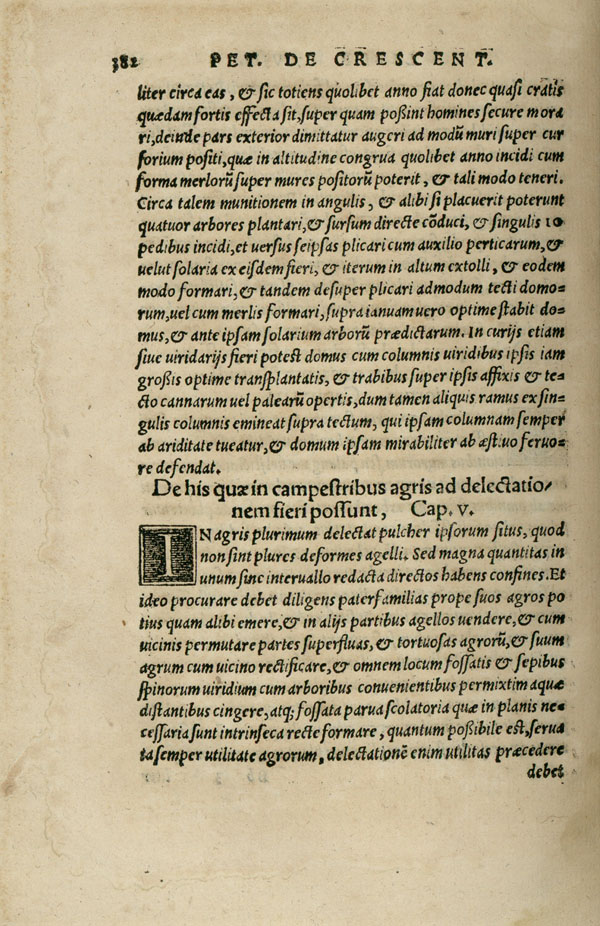 382 PET. DE CRESCENT.
liter circa eas, & sic totiens quolibet anno fiat donec quasi cratis
quædam fortis effecta sit, super quam poßint homines secure mora
ri, deinde pars exterior dimittatur augeri ad modũ muri super cur
forium positi, quæ in altitudine congrua quolibet anno incidi cum
forma merlorũ super mures positorũ poterit, & tali modo teneri.
Circa talem munitionem in angulis, & alibi si placuerit poterunt
quatuor arbores plantari, & sursum directe cõduci, & singulis 10
pedibus incidi, et uersus seipsas plicari cum auxilio perticarum, &
uelut solaria ex eisdem fieri, & iterum in altum extolli, & eodem
modo formari, & tandem desuper plicari admodum tecti domo-
rum, uel cum merlis formari, supra ianuam uero optime stabit do-
mus, & ante ipsam solarium arborũ prædictarum. In curijs etiam
siue uiridarijs fieri potest domus cum columnis uiridibus ipsis iam
großis optime transplantatis, & trabibus super ipsis affixis & te-
cto cannarum uel palearũ opertis, dum tamen aliquis ramus ex sin-
gulis columnis emineat supra tectum, qui ipsam columnam semper
ab ariditate tueatur, & domum ipsam mirabiliter ab æstiuo feruo-
re defendat.
De his quæ in campestribus agris ad delectatio-
nem fieri possunt, Cap. v.
IN agris plurimum delectat pulcher ipsorum situs, quod
non sint plures deformes agelli. Sed magna quantitas in
unum sine interuallo redacta directos habens confines. Et
ideo procurare debet diligens paterfamilias prope suos agros po
tius quam alibi emere, & in alijs partibus agellos uendere, & cum
uicinis permutare partes superfluas, & tortuosas agrorũ, & suum
agrum cum uicino rectificare, & omnem locum fossatis & sepibus
spinorum uiridium cum arboribus conuenientibus permixtim aquæ
distantibus cingere, atq; fossata parua scolatoria quæ in planis ne
cessaria sunt intrinseca recte formare, quantum poßibile est, serua
ta semper utilitate agrorum, delectationẽ enim utilitas præcedere
debet